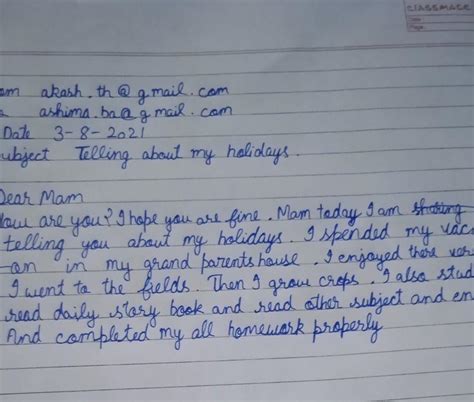 CLASSMATE
Date
Page
om akash.th@gmail.com
ashima.ba@gmail.com
Date 3-8-2021
ubject Telling about my holidays.
Dear Mam
How are you? I hope you are fine. Mam today I am
telling you about my holidays. I spended my vac
on in my grand parents house. I enjoyed there ver
I went to the fields. Then I grow crops. I also stud
read daily story book and read other subject and en
And completed my all homework properly